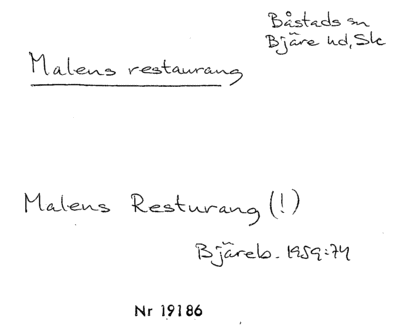 Båstads sn
Bjäre hd, Sk
Malens restaurang
Malens Resturang (!)
Bjäreb. 1959:74
Nr 19186